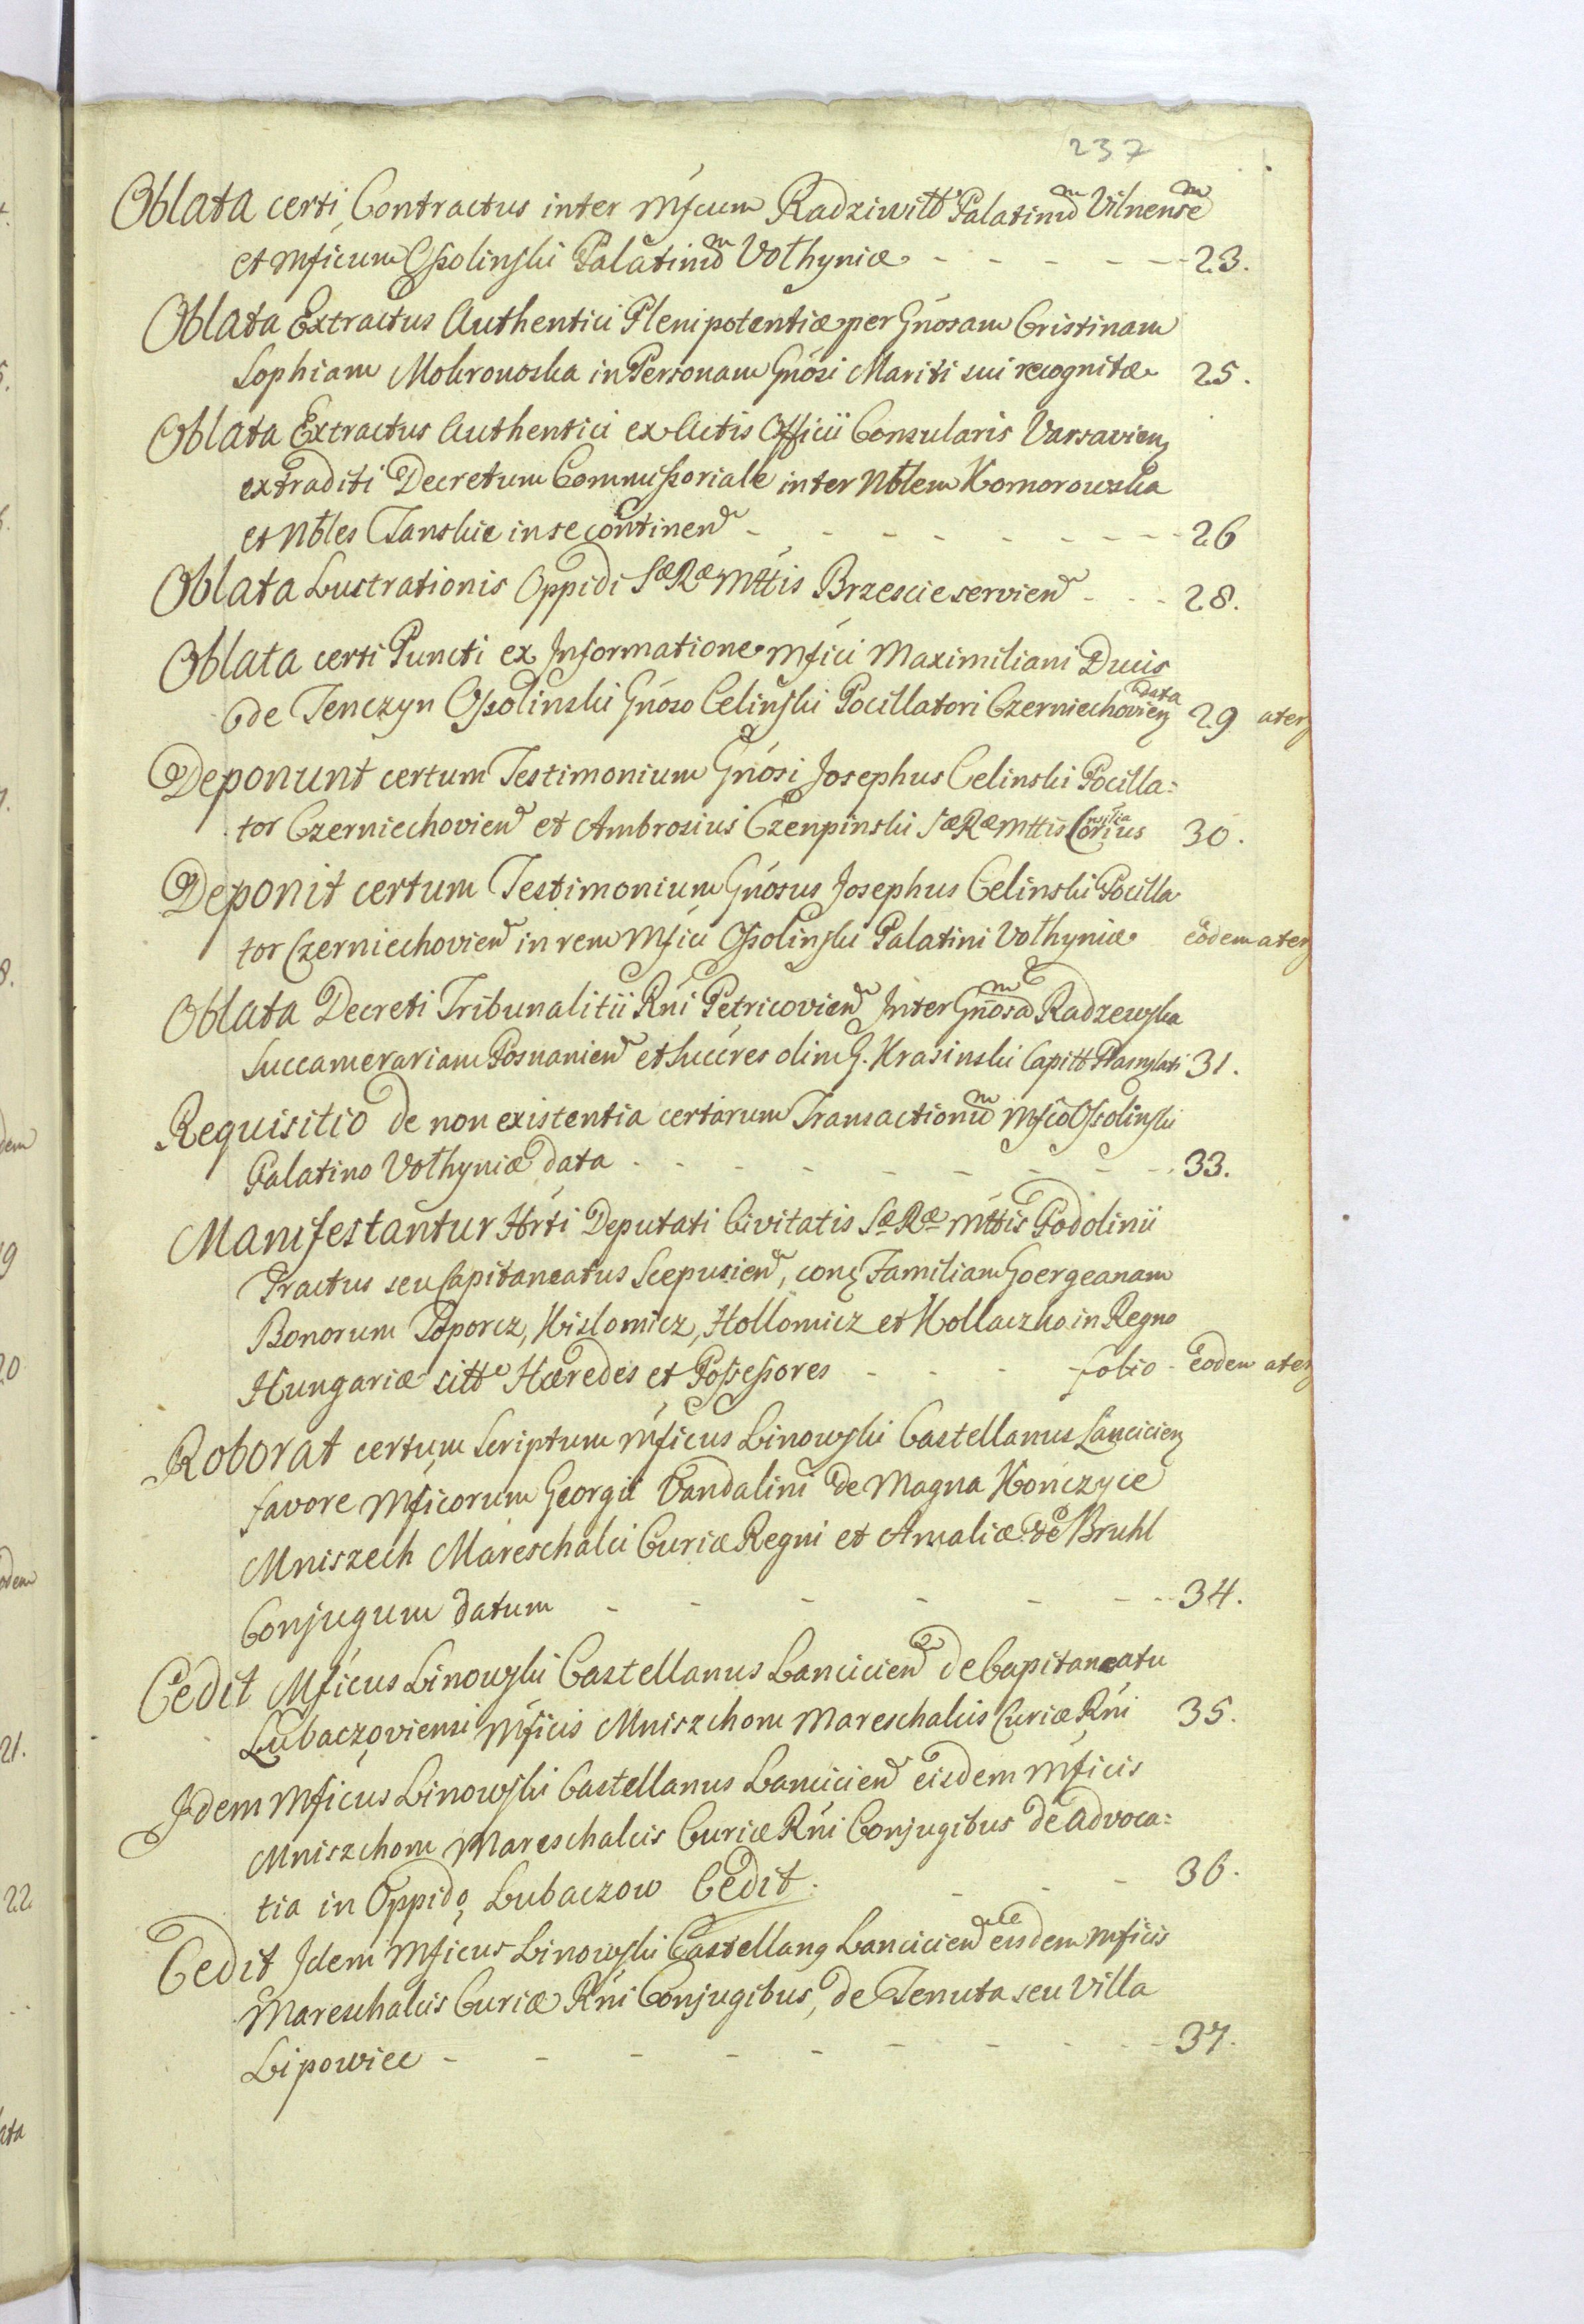 237
Oblata certi Contractus inter Mficum Radziwiłł Palatinũ Vilnense
et Mficum Ossolinski Palatinũ Volhyniæ - - - - - 23.
Oblata Extractus Authentici Plenipotentiæ per Gnosam Cristinam
Sophiam Mokronoska in Personam Gnosi Mariti sui recognitæ 25.
Oblata Extractus Authentici ex Actis Officii Consularis Varsavien
extraditi Decretum Commissoriale inter Nblem Komorowska
et Nbles Tanskie in se continen - - - - - - - - 26
Oblata Lustrationis Oppidi SæRæMttis Brzescie servien - - - 28.
Oblata certi Puncti ex Informatione Mfici Maximiliani Ducis
de Tenczyn Ossolinski Gnoso Celinski Pocillatori Czerniechovien data 29 aterg
Deponunt certum Testimonium Gnosi Josephus Celinski Pocilla=
tor Czerniechovien et Ambrosius Czenpinski SæRæMttis Consiliarius 30.
Deponit certum Testimonium Gnosus Josephus Celinski Pocilla
tor Czerniechovien in rem Mfici Ossolinski Palatini Volhyniæ eodem aterg
Oblata Decreti Tribunalitii Rni Petricovien Inter Gnosã Radzewska
Succamerariam Posnanien et Succres olim G. Krasinski Capitt Prasnysati 31.
Requisitio de non existentia certarum Transactionũ Mfico Ossolinski
Palatino Volhyniæ data - - - - - - - - 33.
Manifestantur Hrti Deputati Civitatis SæRæ Mttis Podolinii
Tractus seu Capitaneatus Scepusien, con Familiam Goergeanam
Bonorum Toporcz, Kislomicz, Hollomicz et Hollaczko in Regno
Hungariæ sitt Hæredes et Possessores - - - - folio - eodem aterg
Roborat certum Scriptum Mficus Linowski Castellanus Lancicien
favore Mficorum Georgii Vandalini de Magna Kończyce
Mniszech Mareschalci Curiæ Regni et Amaliæ de Bruhl
Conjugum datum - - - - - - - 34.
Cedit Mficus Linowski Castellanus Lancicien de Capitaneatu
Lubaczoviensi Mficis Mniszchom Mareschalcis Curiæ Rni 35.
Idem Mficus Linowski Castellanus Lancicien eisdem Mficis
Mniszchom Mareschalcis Curiæ Rni Conjugibus de Advoca=
tia in Oppido Lubaczow Cedit. - - - 36.
Cedit Idem Mficus Linowski Castellanus Lancicien eisdem Mficis
Mareschalcis Curiæ Rni Conjugibus, de Tenuta seu Villa
Lipowiec - - - - - - - - - 37.